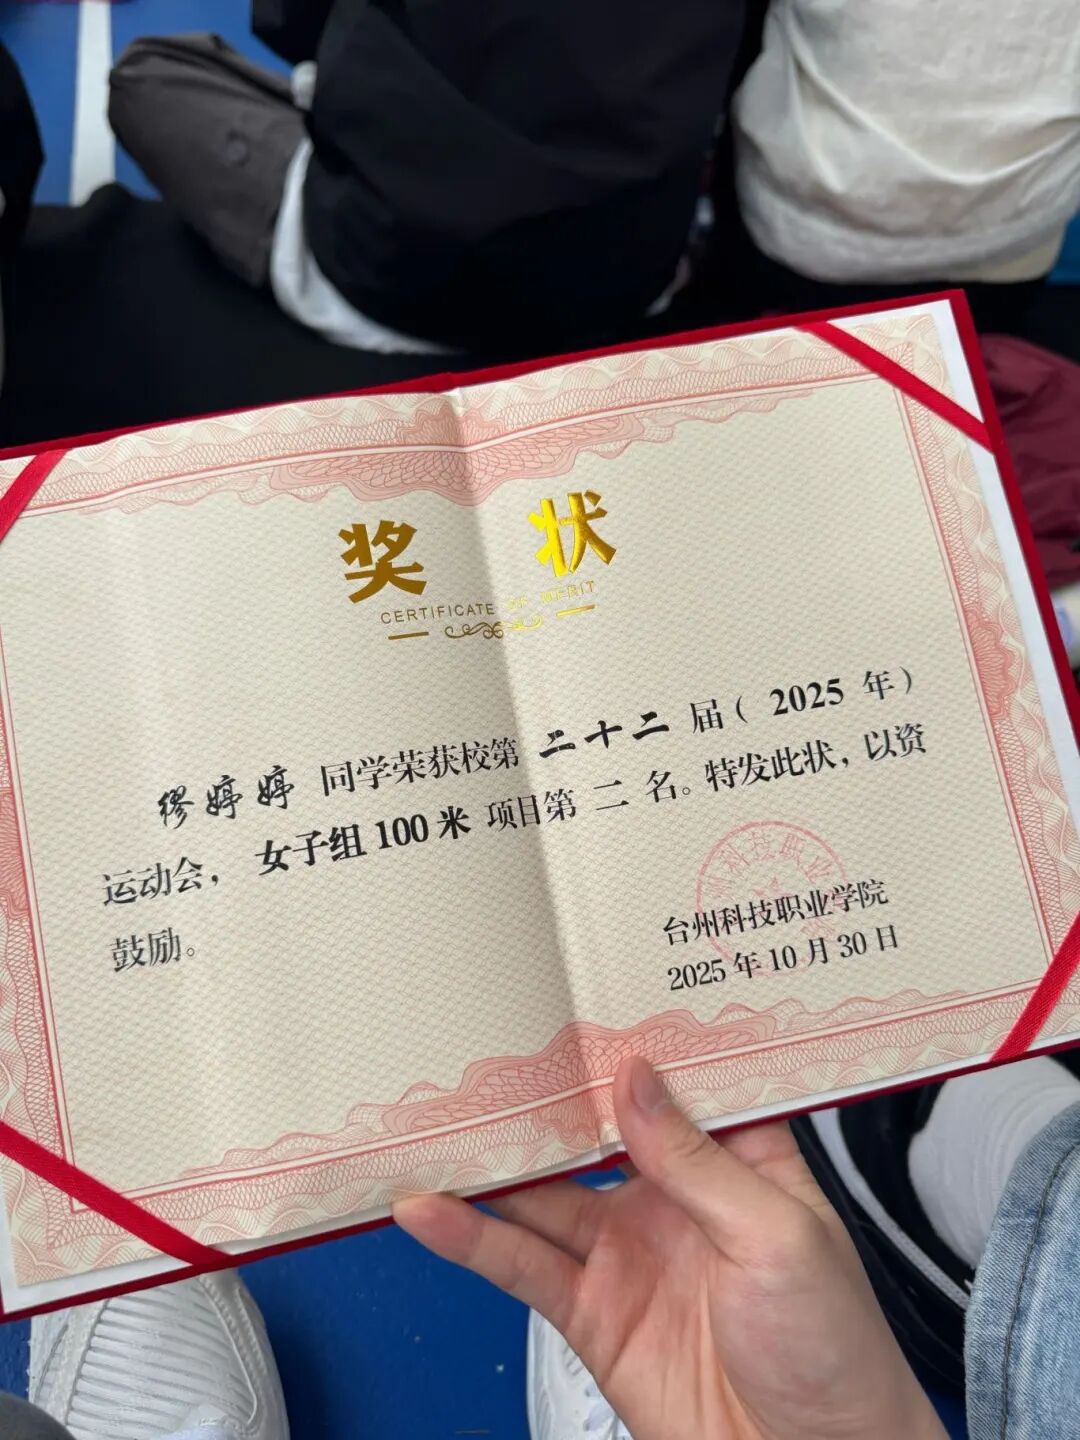 奖 状
CERTIFICATE OF MERIT
缪婷婷 同学荣获校第 二十二 届( 2025 年)
运动会， 女子组 100 米 项目第 二 名。特发此状，以资
鼓励。
台州科技职业学院
2025 年 10 月 30 日
州科技职业